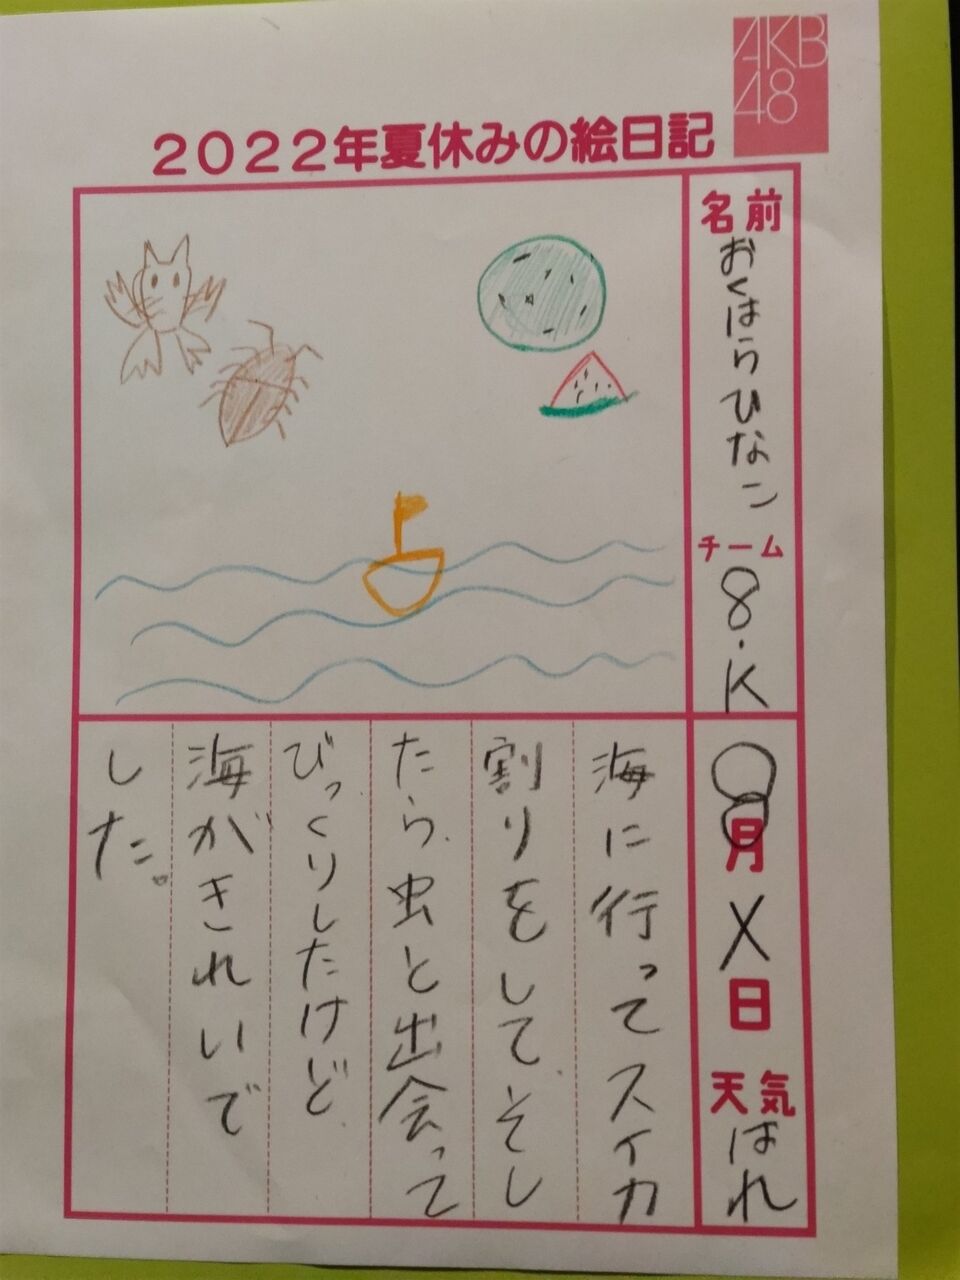 AKB
48
2022年夏休みの絵日記
名前
おぐはらひなこ
チーム
8.K
〇月X日
天気
はれ
海に行ってスイカ
割りをして、そし
たら、虫と出会って
びっくりしたけど
海がきれいで
した。